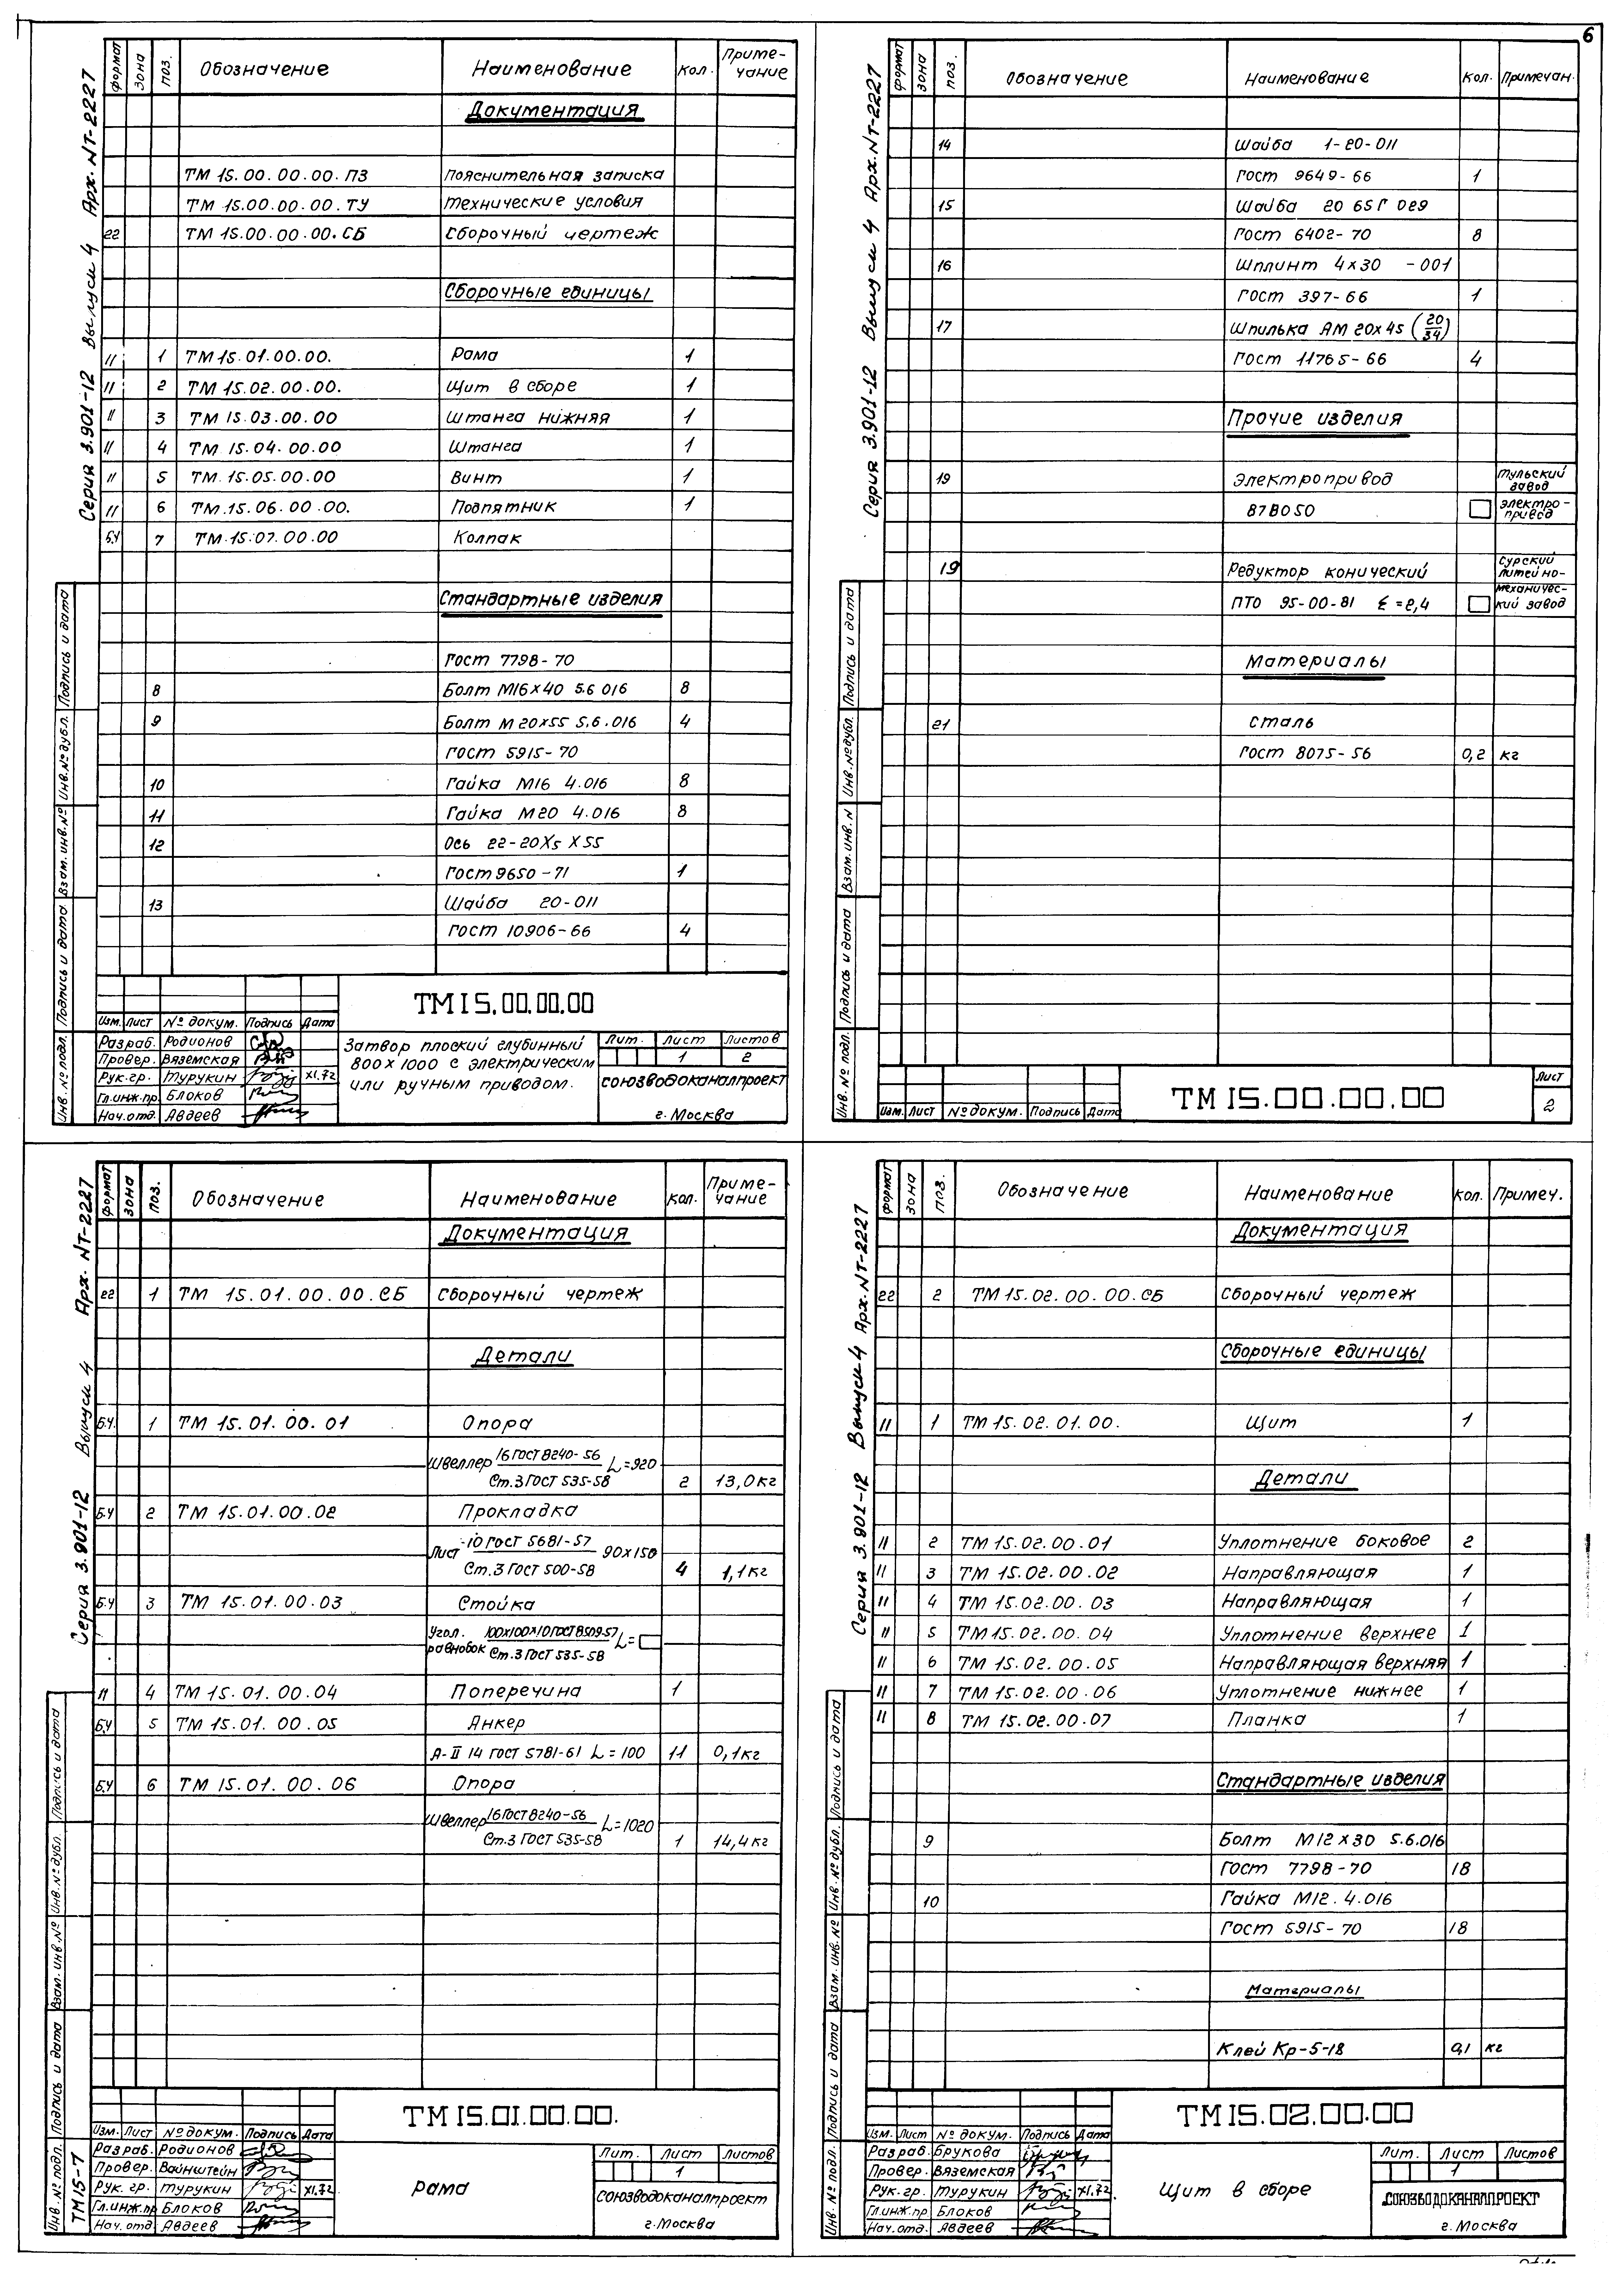 6
Серия 3.901-12 Выпуск 4 Арх.NТ-2227
формат зона поз. Обозначение Наименование кол. Приме-
чание
Документация
ТМ 15.00.00.00.ПЗ Пояснительная записка
ТМ 15.00.00.00.ТУ Технические условия
22 ТМ 15.00.00.00.СБ Сборочный чертеж
Сборочные единицы
11 1 ТМ 15.01.00.00. Рама 1
11 2 ТМ 15.02.00.00. Щит в сборе 1
11 3 ТМ 15.03.00.00 Штанга нижняя 1
11 4 ТМ 15.04.00.00 Штанга 1
11 5 ТМ.15.05.00.00 Винт 1
11 6 ТМ.15.06.00.00. Подпятник 1
БЧ 7 ТМ.15.07.00.00 Колпак
Стандартные изделия
Гост 7798-70
8 Болт М16×40 5.6 016 8
9 Болт М20×55 5.6.016 4
Гост 5915-70
10 Гайка М16 4.016 8
11 Гайка М20 4.016 8
12 Ось 22-20Х5 Х55
Гост 9650-71 1
13 Шайба 20-011
Гост 10906-66 4
ТМ15.00.00.00
Изм. Лист № докум. Подпись Дата
Разраб. Родионов
Провер. Вяземская
Рук.гр. Турукин XI.72
Гл.инж.пр. Блоков
Нач.отд. Авдеев
Затвор плоский глубинный
800×1000 с электрическим
или ручным приводом.
Лит. Лист Листов
1 2
союзводоканалпроект
г. Москва
Инв. № подл. Подпись и дата Взам. инв. № Инв. № дубл. Подпись и дата
Серия 3.901-12 Выпуск 4 Арх.NТ-2227
формат зона поз. Обозначение Наименование кол. Примечан.
14 Шайба 1-20-011
Гост 9649-66 1
15 Шайба 20 65Г 029
Гост 6402-70 8
16 Шплинт 4×30 -001
Гост 397-66 1
17 Шпилька АМ 20×45 (20/34)
Гост 11765-66 4
Прочие изделия
19 Электропривод Тульский
завод
87В050 электро-
привод
19 Редуктор конический Сурский
литейно-
ПТО 95-00-81 ξ=2,4 механичес-
кий завод
Материалы
21 Сталь
Гост 8075-56 0,2 кг
Изм. Лист № докум. Подпись Дата
ТМ15.00.00.00
Лист
2
Инв. № подл. Подпись и дата Взам. инв. N Инв. № дубл. Подпись и дата
Серия 3.901-12 Выпуск 4 Арх. NТ-2227
формат зона поз. Обозначение Наименование кол. Приме-
чание
Документация
22 1 ТМ 15.01.00.00.СБ Сборочный чертеж
Детали
БЧ. 1 ТМ 15.01.00.01 Опора
Швеллер 16 ГОСТ 8240-56 L=920
Ст.3 ГОСТ 535-58 2 13,0кг
БЧ 2 ТМ 15.01.00.02 Прокладка
Лист -10 ГОСТ 5681-57 90×150
Ст.3 ГОСТ 500-58 4 1,1кг
БЧ 3 ТМ 15.01.00.03 Стойка
Угол. 100×100×10 ГОСТ 8509-57 L=
равнобок Ст.3 ГОСТ 535-58
11 4 ТМ 15.01.00.04 Поперечина 1
БЧ 5 ТМ 15.01.00.05 Анкер
А-II 14 ГОСТ 5781-61 L=100 11 0,1кг
БЧ 6 ТМ 15.01.00.06 Опора
Швеллер 16 ГОСТ 8240-56 L=1020
Ст.3 ГОСТ 535-58 1 14,4кг
ТМ15.01.00.00.
Изм. Лист № докум. Подпись Дата
Разраб. Родионов
Провер. Вайнштейн
Рук. гр. Турукин XI.72
Гл.инж.пр Блоков
Нач.отд. Авдеев
рама
Лит. Лист Листов
1
союзводоканалпроект
г.Москва
Инв. № подл. Подпись и дата Взам. инв. № Инв. № дубл. Подпись и дата
ТМ15-7
Серия 3.901-12 Выпуск 4 Арх.NТ-2227
формат зона поз. Обозначение Наименование кол. Примеч.
Документация
22 2 ТМ 15.02.00.00.СБ Сборочный чертеж
Сборочные единицы
11 1 ТМ 15.02.01.00. Щит 1
Детали
11 2 ТМ 15.02.00.01 Уплотнение боковое 2
11 3 ТМ 15.02.00.02 Направляющая 1
11 4 ТМ 15.02.00.03 Направляющая 1
11 5 ТМ 15.02.00.04 Уплотнение верхнее 1
11 6 ТМ 15.02.00.05 Направляющая верхняя 1
11 7 ТМ 15.02.00.06 Уплотнение нижнее 1
11 8 ТМ 15.02.00.07 Планка 1
Стандартные изделия
9 Болт М12×30 5.6.016
Гост 7798-70 18
10 Гайка М12.4.016
Гост 5915-70 18
Материалы
Клей Кр-5-18 0,1 кг
ТМ15.02.00.00
Изм. Лист № докум. Подпись Дата
Разраб. Брукова
Провер. Вяземская
Рук.гр. Турукин XI.72
Гл.инж.пр Блоков
Нач.отд. Авдеев
Щит в сборе
Лит. Лист Листов
1
СОЮЗВОДОКАНАЛПРОЕКТ
г.Москва
Инв. № подл. Подпись и дата Взам. инв. № Инв. № дубл. Подпись и дата